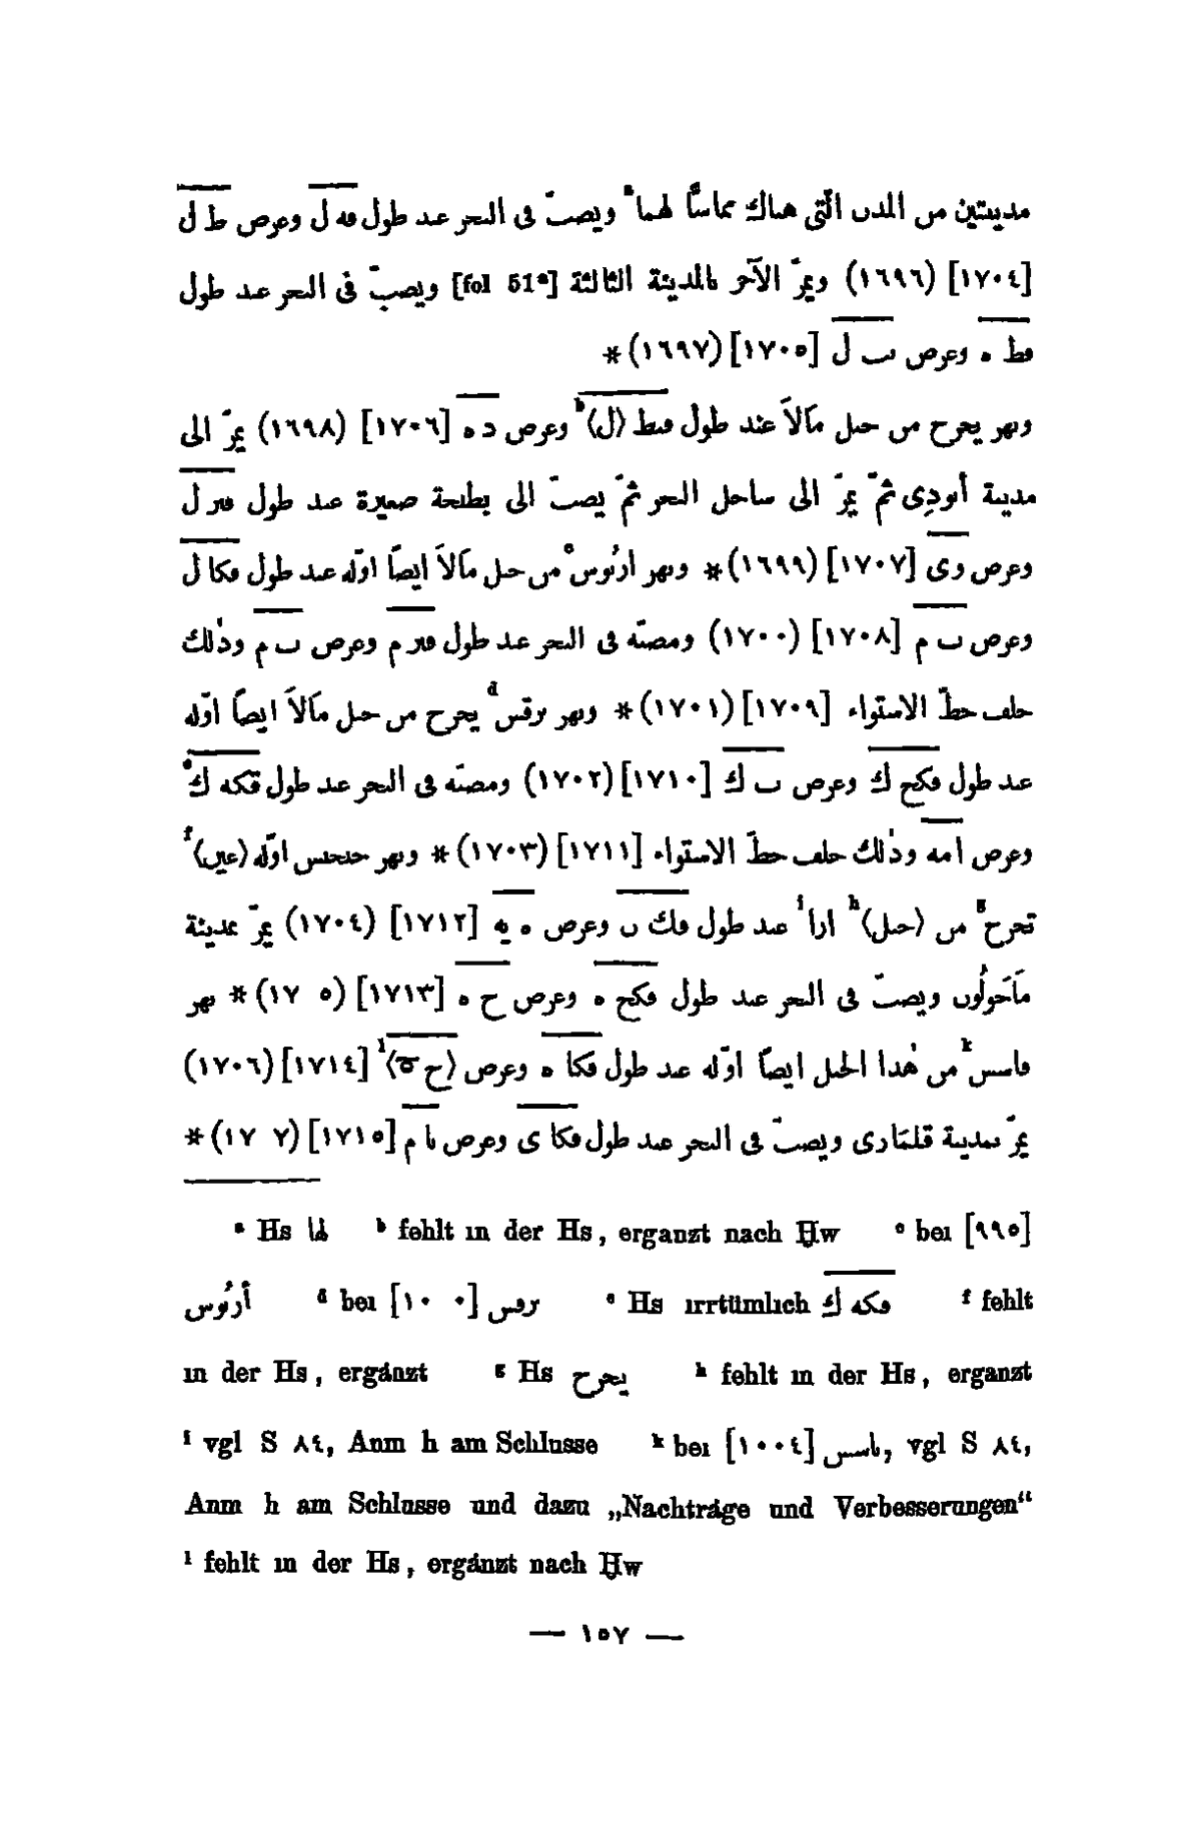 مدينتين من المدن الّتى هناك مماسًّا لهما ª ويصبّ فى البحر عند طول قه ل وعرض ط ل
[١٧٠٤] (١٦٩٦) ويمرّ الآخر بالمدينة الثالثة [fol 51ª] ويصبّ فى البحر عند طول
قط ه وعرض ىٮ ل [١٧٠٥] (١٦٩٧) *
ونهر يخرج من جبل مَالَا عند طول قىط ⟨ل⟩ᵇ وعرض د ه [١٧٠٦] (١٦٩٨) يمرّ الى
مدينة أنودِى ثمّ يمرّ الى ساحل البحر ثمّ يصبّ الى بطيحة صغيرة عند طول قىر ل
وعرض و ى [١٧٠٧] (١٦٩٩) * ونهر ارنُوسᶜ من جبل مَالَا ايضًا اوّله عند طول قكا ل
وعرض ٮ م [١٧٠٨] (١٧٠٠) ومصبّه فى البحر عند طول قىر م وعرض ٮ م وذٰلك
خلف خطّ الاستواء [١٧٠٩] (١٧٠١) * ونهر برقسᵈ يخرج من جبل مَالَا ايضًا اوّله
عند طول قكح ك وعرض ٮ ك [١٧١٠] (١٧٠٢) ومصبّه فى البحر عند طول قكه كᵉ
وعرض ا مه وذٰلك خلف خطّ الاستواء [١٧١١] (١٧٠٣) * ونهر اوّله ⟨عين⟩ᶠ
تخرجᵍ من ⟨جبل⟩ʰ اراⁱ عند طول قك ں وعرض ه يه [١٧١٢] (١٧٠٤) يمرّ بمدينة
مَاَخولُوں ويصبّ فى البحر عند طول قكح ه وعرض ح ه [١٧١٣] (١٧ ٥) * نهر
فاسسᵏ من هٰذا الجبل ايضًا اوّله عند طول قكا ه وعرض ⟨ح ه⟩ˡ [١٧١٤] (١٧٠٦)
يمرّ بمدينة قلىمَارى ويصبّ فى البحر عند طول قكا ى وعرض ىا م [١٧١٥] (١٧ ٧) *
ª Hs لها ᵇ fehlt in der Hs, erganzt nach Ḫw ᶜ bei [٩٩٥]
أَرنُوس ᵈ bei [١٠ ٠] برقس ᵉ Hs irrtümlich فكه ك ᶠ fehlt
in der Hs, ergänzt ᵍ Hs يخرج ʰ fehlt in der Hs, erganzt
ⁱ vgl S ٨٤, Anm h am Schlusse ᵏ bei [١٠٠٤] باسس, vgl S ٨٤,
Anm h am Schlusse und dazu „Nachträge und Verbesserungen“
ˡ fehlt in der Hs, ergänzt nach Ḫw
— ١٥٧ —